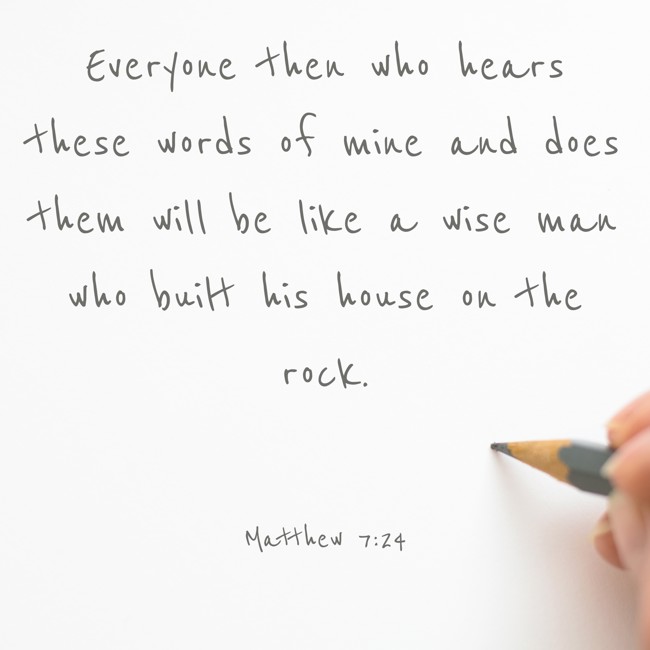 Everyone then who hears
these words of mine and does
them will be like a wise man
who built his house on the
rock.
Matthew 7:24